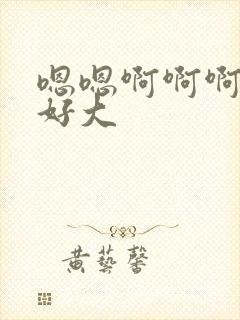 嗯嗯啊啊啊
好大
黄藝馨